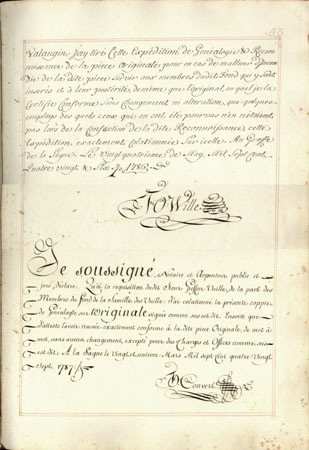 Valangin, J'ay tiré Cette Expédition, de Genéalogie & Recon-
noissance de la piéce Originale, pour en cas de malheur d'Incen-
die de la dite piéce Servir aux membres dudit Fond qui y sont
inserés et à leur posterité, de même que l'original, au quel je la
Certifie Conforme Sans Changement ni alteration, que quelques
emplois des quels ceux qui en ont êtés pourvus n'en n'étoient
pas lors de la Confection de la dite Reconnoissance, cette
Expédition, exactement colationnée Sur icelle. Au Greffe
de la Sagne Le Vingtquatrieme de May, Mil Sept Cent
Quatre vingt & Six /. 1786.
Vuille
Je soussigné, Notaire et Argenteur, public et
juré, declare, Qu'à la requisition dudit Sieur Greffier Vuille, de la part des
Membres du Fond de la Famille des Vuille. J'ai colationné la présente coppie
de Genéalogie, sur l'Originale signée comme sus est dit. Laquelle que
j'atteste l'avoir trouvée exactement conforme à la dite piéce Originale, de mot à
mot, sans aucun changement, excepté pour des Charges et Offices comme sus
est dit. A la Sagne le Vingt et unieme Mars Mil sept cent quatre Vingt
Sept. 1787 /.
Convert